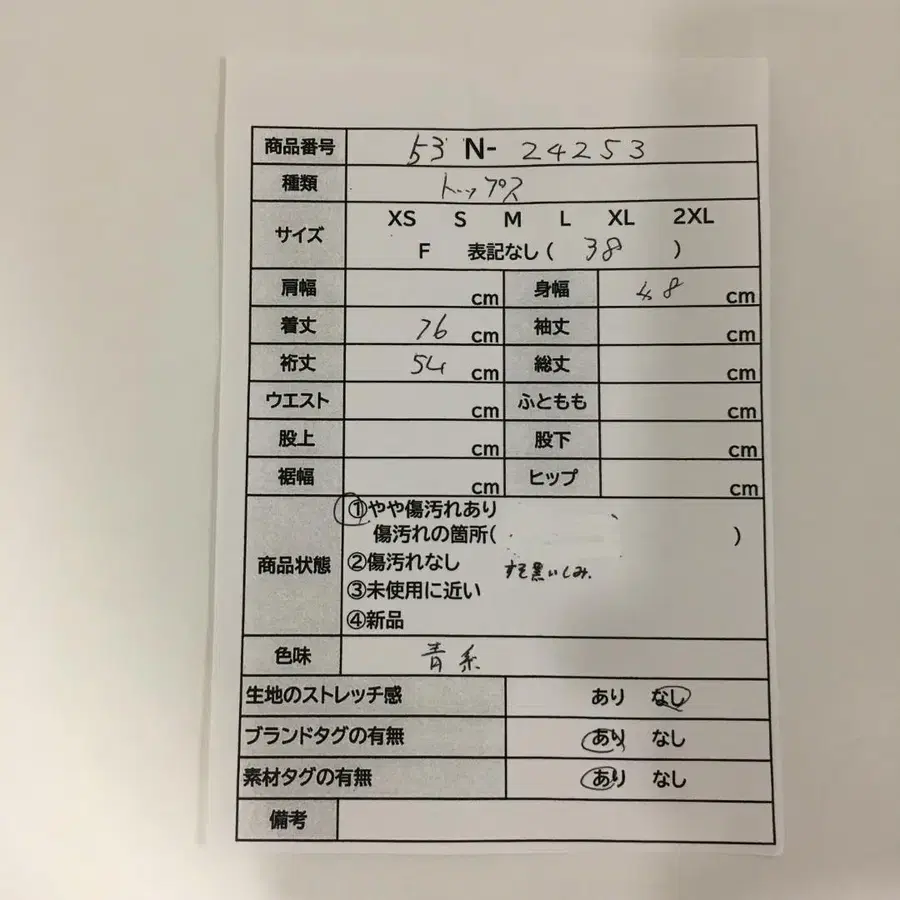 商品番号 53 N- 24253
種類 トップス
サイズ XS S M L XL 2XL
F 表記なし ( 38 )
肩幅 cm 身幅 48 cm
着丈 76 cm 袖丈 cm
裄丈 54 cm 総丈 cm
ウエスト cm ふともも cm
股上 cm 股下 cm
裾幅 cm ヒップ cm
商品状態 ①やや傷汚れあり
傷汚れの箇所( )
②傷汚れなし すそ黒いしみ.
③未使用に近い
④新品
色味 青系
生地のストレッチ感 あり なし
ブランドタグの有無 あり なし
素材タグの有無 あり なし
備考